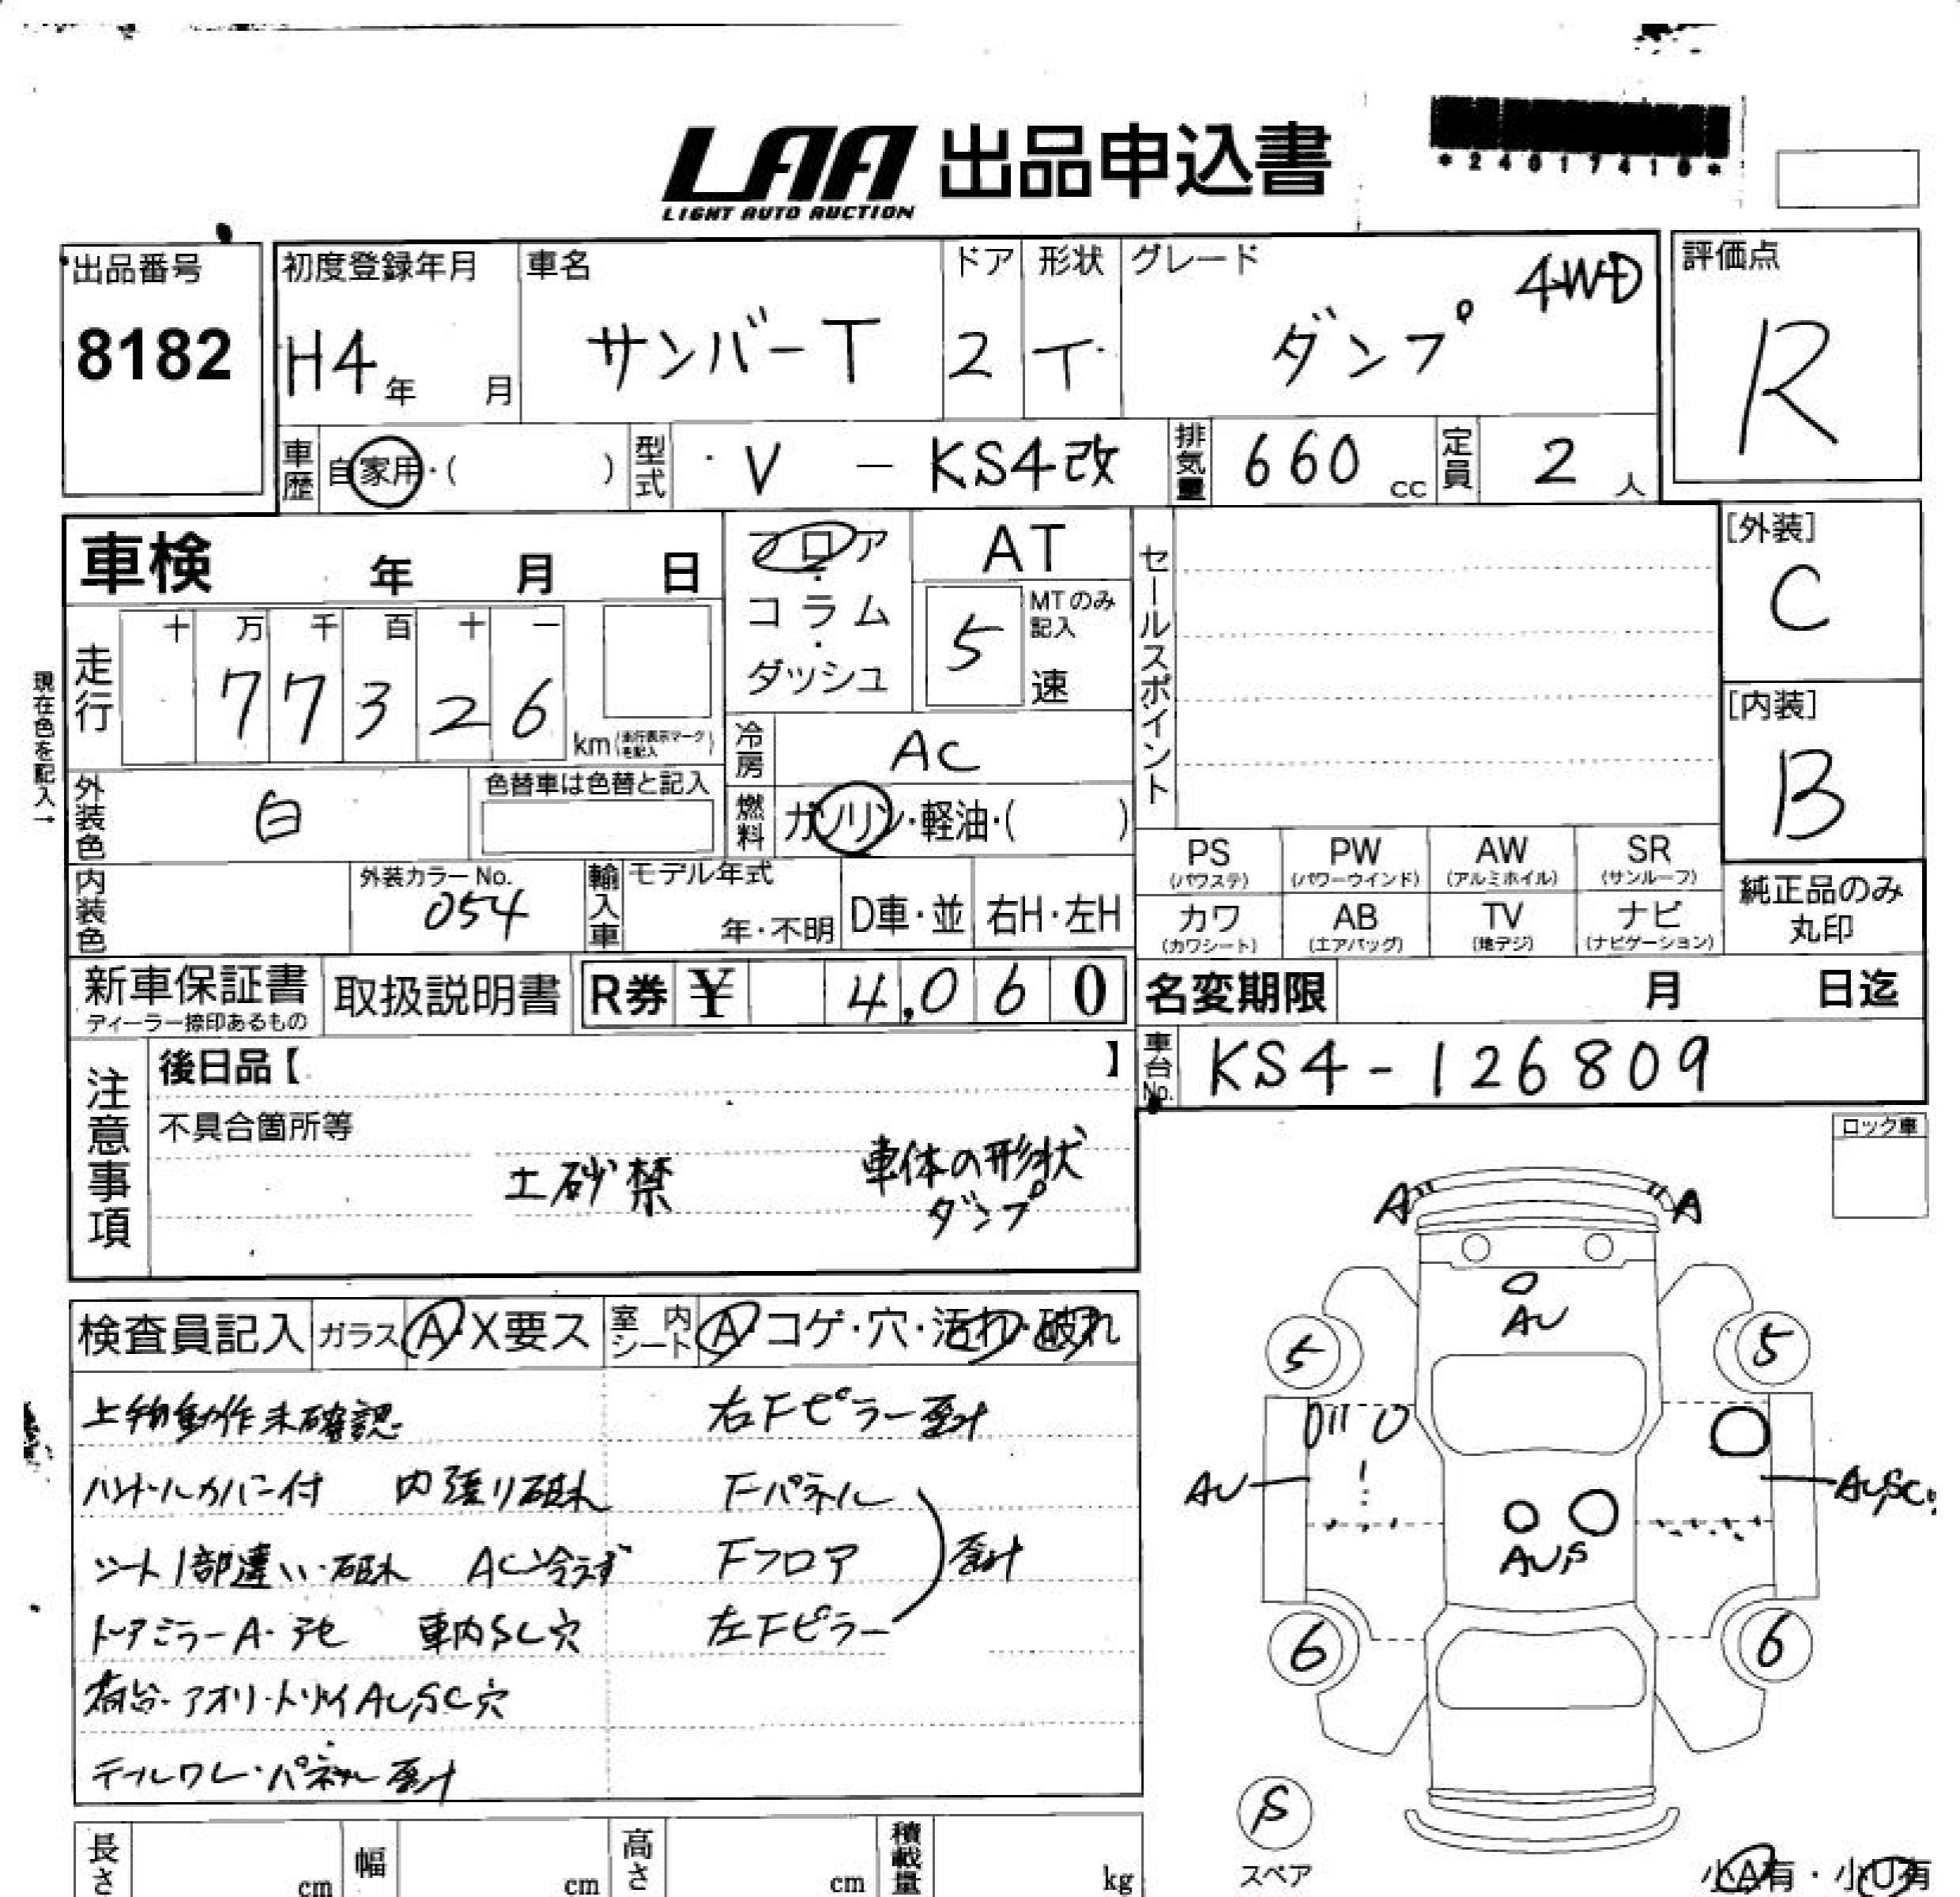 LAA 出品申込書
LIGHT AUTO AUCTION
*24017410*
出品番号
8182
初度登録年月
H4年 月
車名
サンバーT
ドア
2
形状
T
グレード
4WD
ダンプ
評価点
R
車歴
自家用・( )
型式
V - KS4改
排気量
660 cc
定員
2 人
車検 年 月 日
フロア・コラム・ダッシュ
AT
5
MTのみ記入
速
セールスポイント
[外装]
C
[内装]
B
現在色を記入→
走行
十 万 千 百 十 一
7 7 3 2 6
km (走行表示マークを記入)
冷房
AC
燃料
ガソリン・軽油・( )
外装色
白
色替車は色替と記入
内装色
外装カラーNo.
054
輸入車
モデル年式
年・不明
D車・並
右H・左H
PS (パワステ)
PW (パワーウインド)
AW (アルミホイル)
SR (サンルーフ)
カワ (カワシート)
AB (エアバッグ)
TV (地デジ)
ナビ (ナビゲーション)
純正品のみ丸印
新車保証書
ディーラー捺印あるもの
取扱説明書
R券 ¥ 4,060
名変期限 月 日迄
車台No.
KS4-126809
注意事項
後日品【 】
不具合箇所等
土砂禁
車体の形状
ダンプ
ロック車
検査員記入
ガラス A・X要ス
室内シート A・コゲ・穴・汚れ・破れ
上物動作未確認 右Fピラー歪汁
ハンドルカバー付 内張り破れ Fパネル
シート1部違い・破れ AC冷えず Fフロア 歪汁
ドアミラーA・アセ 車内SC穴 左Fピラー
荷台・アオリ・トリイAU,SC穴
テールワレ・パネル歪汁
A A
AU
5 5
AU
AU,SC
AU,S
6 6
S
スペア
小A有・小U有
長さ cm
幅 cm
高さ cm
積載量 kg